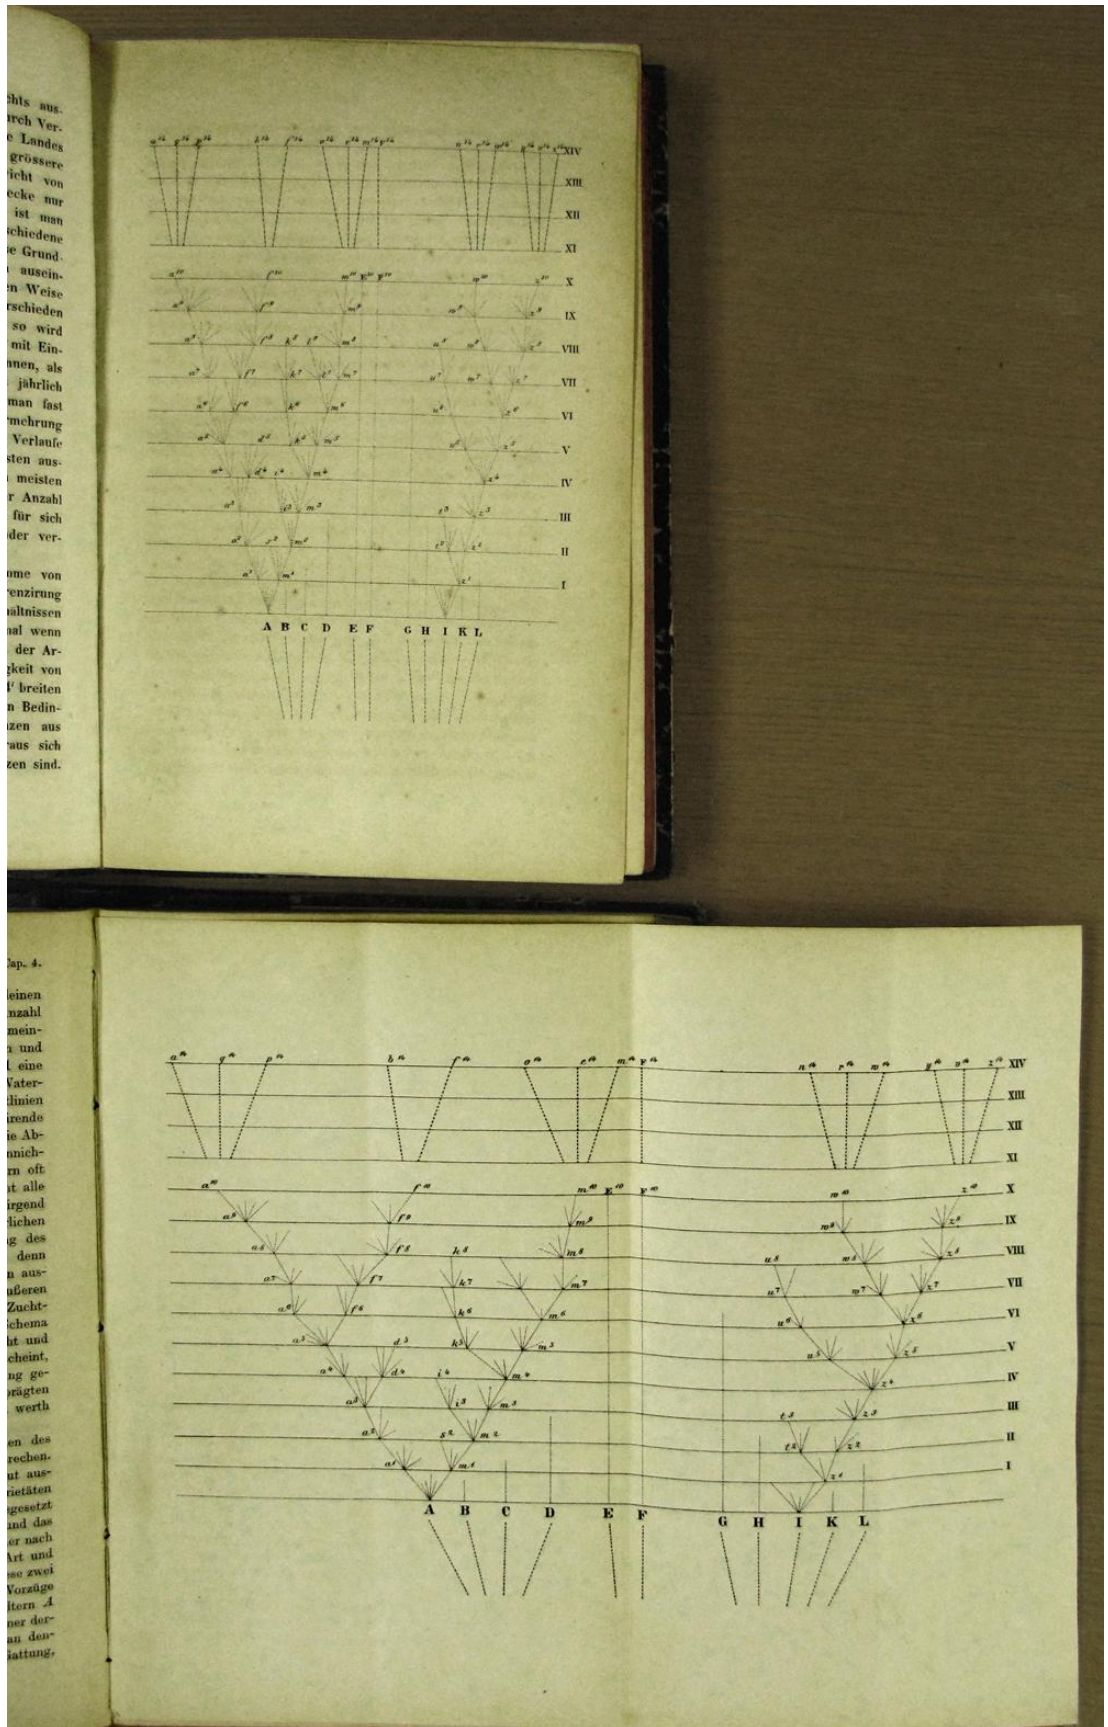 chts aus-
urch Ver-
e Landes
grössere
icht von
ecke nur
ist man
schiedene
e Grund-
ausein-
n Weise
rschieden
so wird
mit Ein-
nnen, als
jährlich
man fast
rmehrung
Verlaufe
sten aus-
meisten
r Anzahl
für sich
der ver-
ome von
renzirung
hältnissen
mal wenn
der Ar-
gkeit von
breiten
n Bedin-
nzen aus
raus sich
zen sind.
a¹⁴ q¹⁴ p¹⁴ b¹⁴ f¹⁴ o¹⁴ e¹⁴ m¹⁴ F¹⁴ n¹⁴ r¹⁴ w¹⁴ y¹⁴ v¹⁴ z¹⁴ XIV
XIII
XII
XI
a¹⁰ f¹⁰ m¹⁰ E¹⁰ F¹⁰ w¹⁰ z¹⁰ X
a⁹ f⁹ m⁹ w⁹ z⁹ IX
a⁸ f⁸ k⁸ l⁸ m⁸ u⁸ w⁸ z⁸ VIII
a⁷ f⁷ k⁷ l⁷ m⁷ u⁷ w⁷ z⁷ VII
a⁶ f⁶ k⁶ m⁶ u⁶ z⁶ VI
a⁵ d⁵ k⁵ m⁵ u⁵ z⁵ V
a⁴ d⁴ i⁴ m⁴ z⁴ IV
a³ i³ m³ t³ z³ III
a² s² m² t² z² II
a¹ m¹ z¹ I
A B C D E F G H I K L
Cap. 4.
leinen
nzahl
mein-
und
eine
Vater-
tlinien
irende
ie Ab-
nnich-
rn oft
st alle
irgend
lichen
g des
denn
n aus-
ußeren
Zucht-
chema
ht und
cheint,
ng ge-
prägten
werth
en des
rechen.
ut aus-
rietäten
gesetzt
und das
er nach
Art und
ese zwei
Vorzüge
ltern A
ner der-
an den-
Gattung,
a¹⁴ q¹⁴ p¹⁴ b¹⁴ f¹⁴ o¹⁴ e¹⁴ m¹⁴ F¹⁴ n¹⁴ r¹⁴ w¹⁴ y¹⁴ v¹⁴ z¹⁴ XIV
XIII
XII
XI
a¹⁰ f¹⁰ m¹⁰ E¹⁰ F¹⁰ w¹⁰ z¹⁰ X
a⁹ f⁹ m⁹ w⁹ z⁹ IX
a⁸ f⁸ k⁸ m⁸ u⁸ w⁸ z⁸ VIII
a⁷ f⁷ k⁷ m⁷ u⁷ w⁷ z⁷ VII
a⁶ f⁶ k⁶ m⁶ u⁶ z⁶ VI
a⁵ d⁵ k⁵ m⁵ u⁵ z⁵ V
a⁴ d⁴ i⁴ m⁴ z⁴ IV
a³ i³ m³ t³ z³ III
a² s² m² t² z² II
a¹ m¹ z¹ I
A B C D E F G H I K L